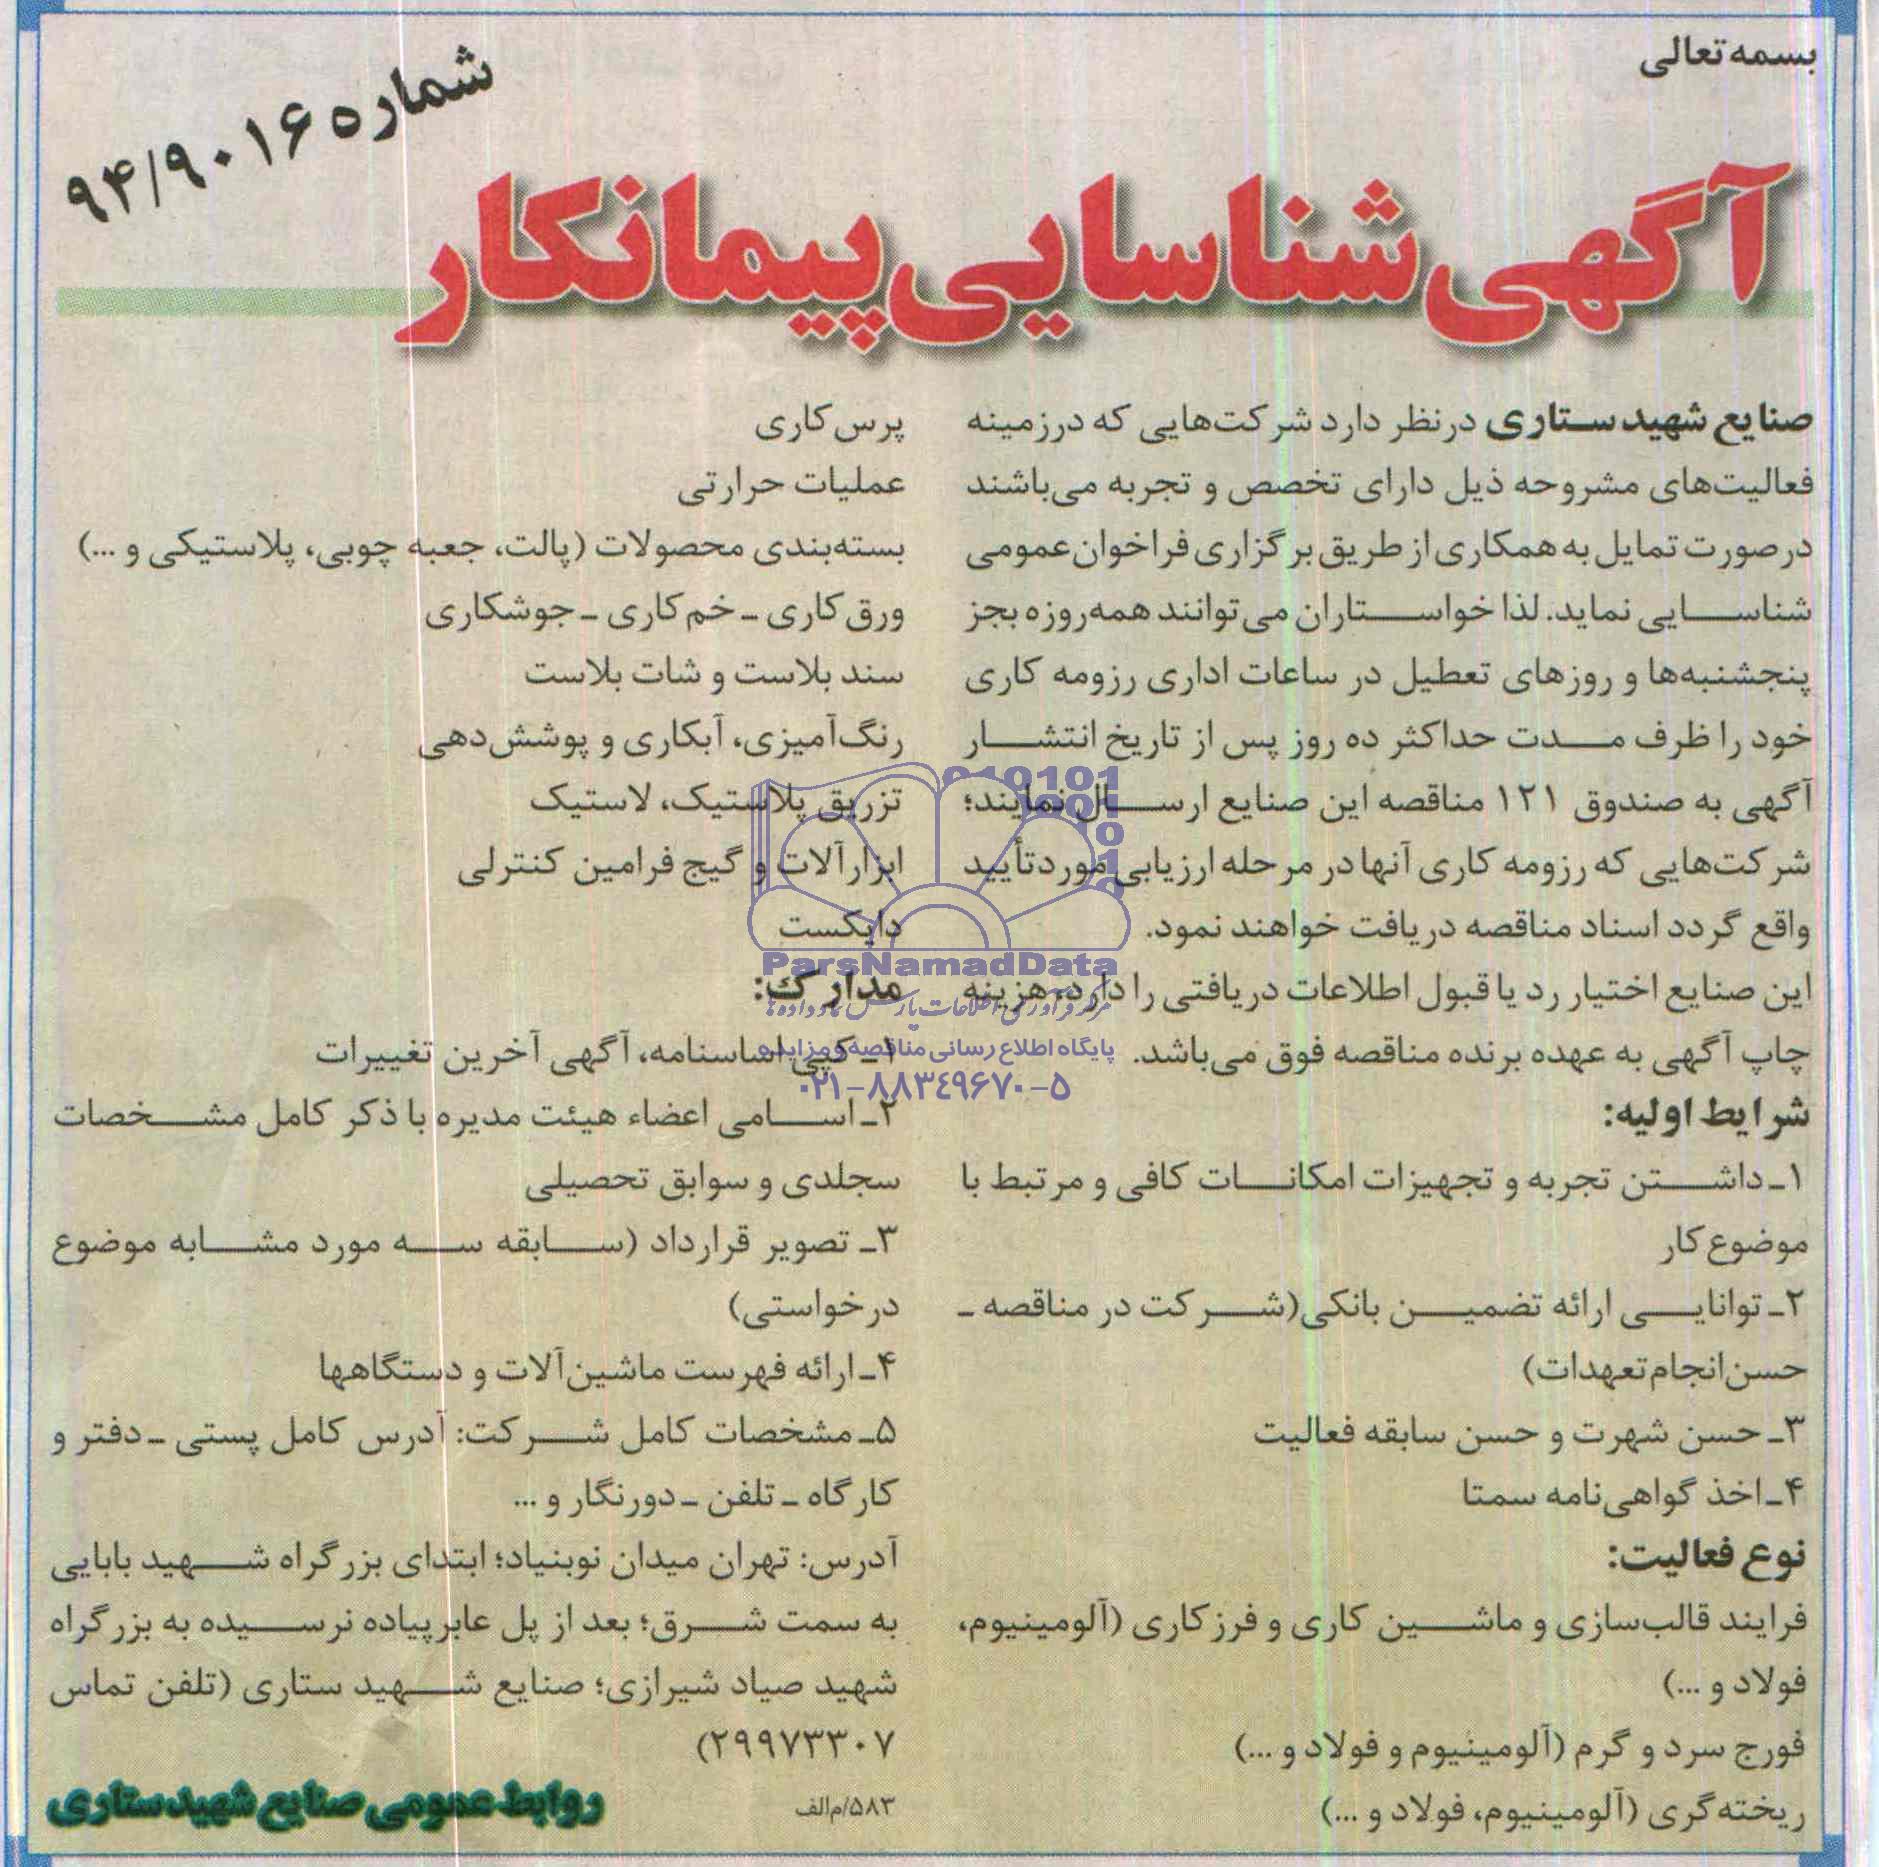 بسمه تعالی
شماره ۹۴/۹۰۱۶
آگهی شناسایی پیمانکار
صنایع شهید ستاری درنظر دارد شرکت‌هایی که درزمینه
فعالیت‌های مشروحه ذیل دارای تخصص و تجربه می‌باشند
درصورت تمایل به همکاری از طریق برگزاری فراخوان عمومی
شناسایی نماید. لذا خواستاران می‌توانند همه‌روزه بجز
پنجشنبه‌ها و روزهای تعطیل در ساعات اداری رزومه کاری
خود را ظرف مدت حداکثر ده روز پس از تاریخ انتشار
آگهی به صندوق ۱۲۱ مناقصه این صنایع ارسال نمایند؛
شرکت‌هایی که رزومه کاری آنها در مرحله ارزیابی موردتأیید
واقع گردد اسناد مناقصه دریافت خواهند نمود.
این صنایع اختیار رد یا قبول اطلاعات دریافتی را دارد، هزینه
چاپ آگهی به عهده برنده مناقصه فوق می‌باشد.
شرایط اولیه:
۱ـ داشتن تجربه و تجهیزات امکانات کافی و مرتبط با
موضوع کار
۲ـ توانایی ارائه تضمین بانکی (شرکت در مناقصه ـ
حسن انجام تعهدات)
۳ـ حسن شهرت و حسن سابقه فعالیت
۴ـ اخذ گواهی‌نامه سمتا
نوع فعالیت:
فرایند قالب‌سازی و ماشین کاری و فرزکاری (آلومینیوم،
فولاد و ...)
فورج سرد و گرم (آلومینیوم و فولاد و ...)
ریخته‌گری (آلومینیوم، فولاد و ...)
پرس کاری
عملیات حرارتی
بسته‌بندی محصولات (پالت، جعبه چوبی، پلاستیکی و ...)
ورق کاری ـ خم کاری ـ جوشکاری
سند بلاست و شات بلاست
رنگ‌آمیزی، آبکاری و پوشش‌دهی
تزریق پلاستیک، لاستیک
ابزارآلات و گیج فرامین کنترلی
دایکست
مدارک:
۱ـ کپی اساسنامه، آگهی آخرین تغییرات
۲ـ اسامی اعضاء هیئت مدیره با ذکر کامل مشخصات
سجلدی و سوابق تحصیلی
۳ـ تصویر قرارداد (سابقه سه مورد مشابه موضوع
درخواستی)
۴ـ ارائه فهرست ماشین‌آلات و دستگاهها
۵ـ مشخصات کامل شرکت: آدرس کامل پستی ـ دفتر و
کارگاه ـ تلفن ـ دورنگار و ...
آدرس: تهران میدان نوبنیاد؛ ابتدای بزرگراه شهید بابایی
به سمت شرق؛ بعد از پل عابرپیاده نرسیده به بزرگراه
شهید صیاد شیرازی؛ صنایع شهید ستاری (تلفن تماس
۲۹۹۷۳۳۰۷)
۵۸۳/م‌الف
روابط عمومی صنایع شهید ستاری
ParsNamadData
مرکز فرآوری اطلاعات پارس نماد داده ها
پایگاه اطلاع رسانی مناقصه و مزایده
۰۲۱-۸۸۳۴۹۶۷۰-۵